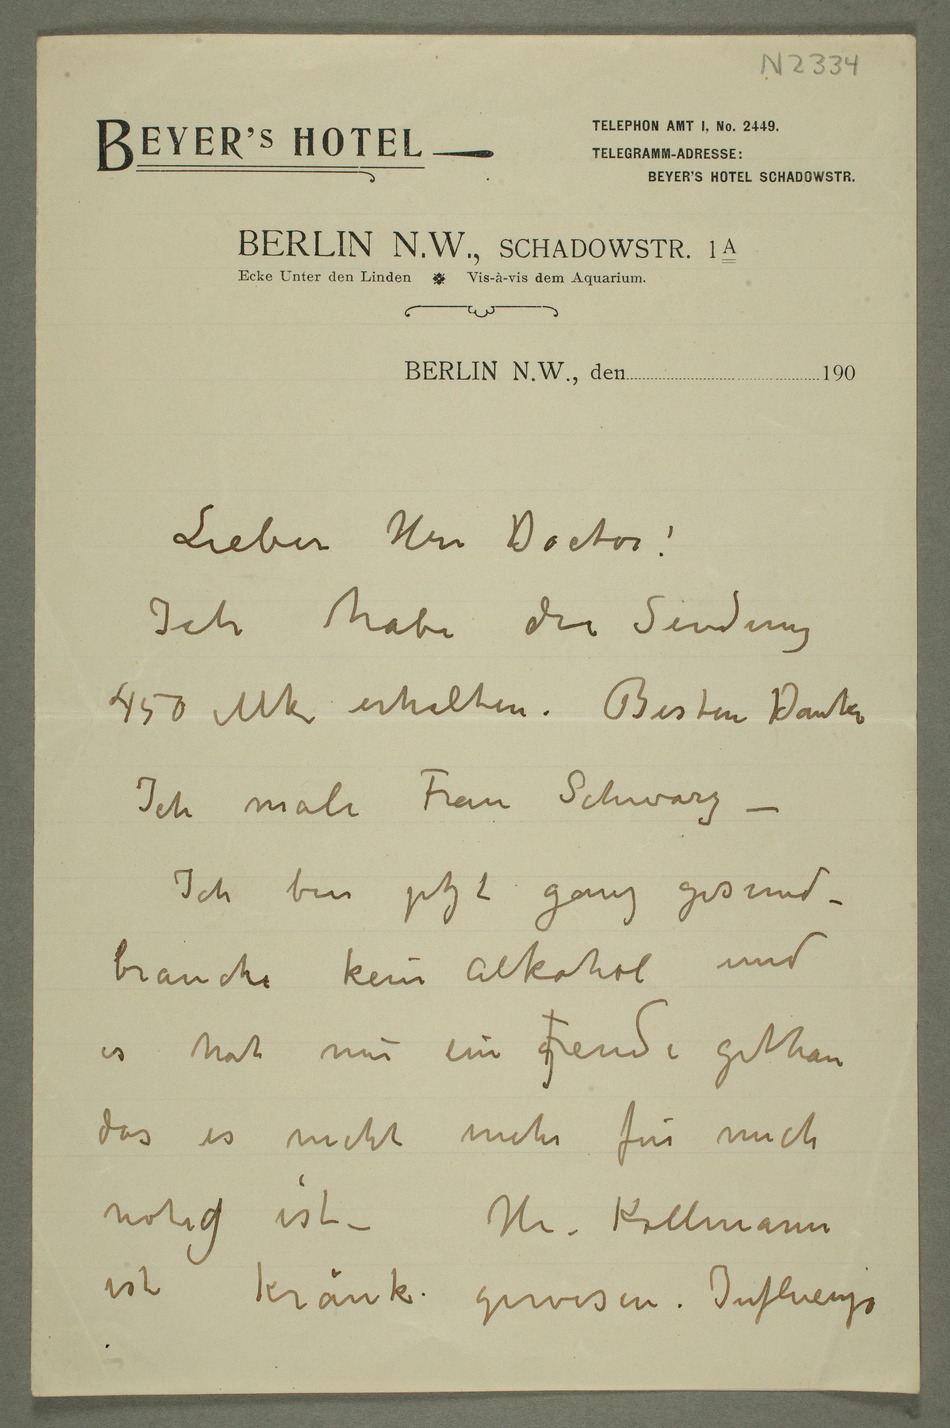 N2334
BEYER'S HOTEL
TELEPHON AMT I, No. 2449.
TELEGRAMM-ADRESSE:
BEYER'S HOTEL SCHADOWSTR.
BERLIN N.W., SCHADOWSTR. 1A
Ecke Unter den Linden Vis-à-vis dem Aquarium.
BERLIN N.W., den 190
Lieber Herr Doctor!
Ich habe die Sendung
450 Mk erhalten. Besten Dank
Ich male Frau Schwarz –
Ich bin jetzt ganz gesund –
brauche kein Alkohol und
es hat mir ein Freude gethan
das es nicht mehr für mich
notig ist – Hr. Kollmann
ist krank gewesen. Influenza